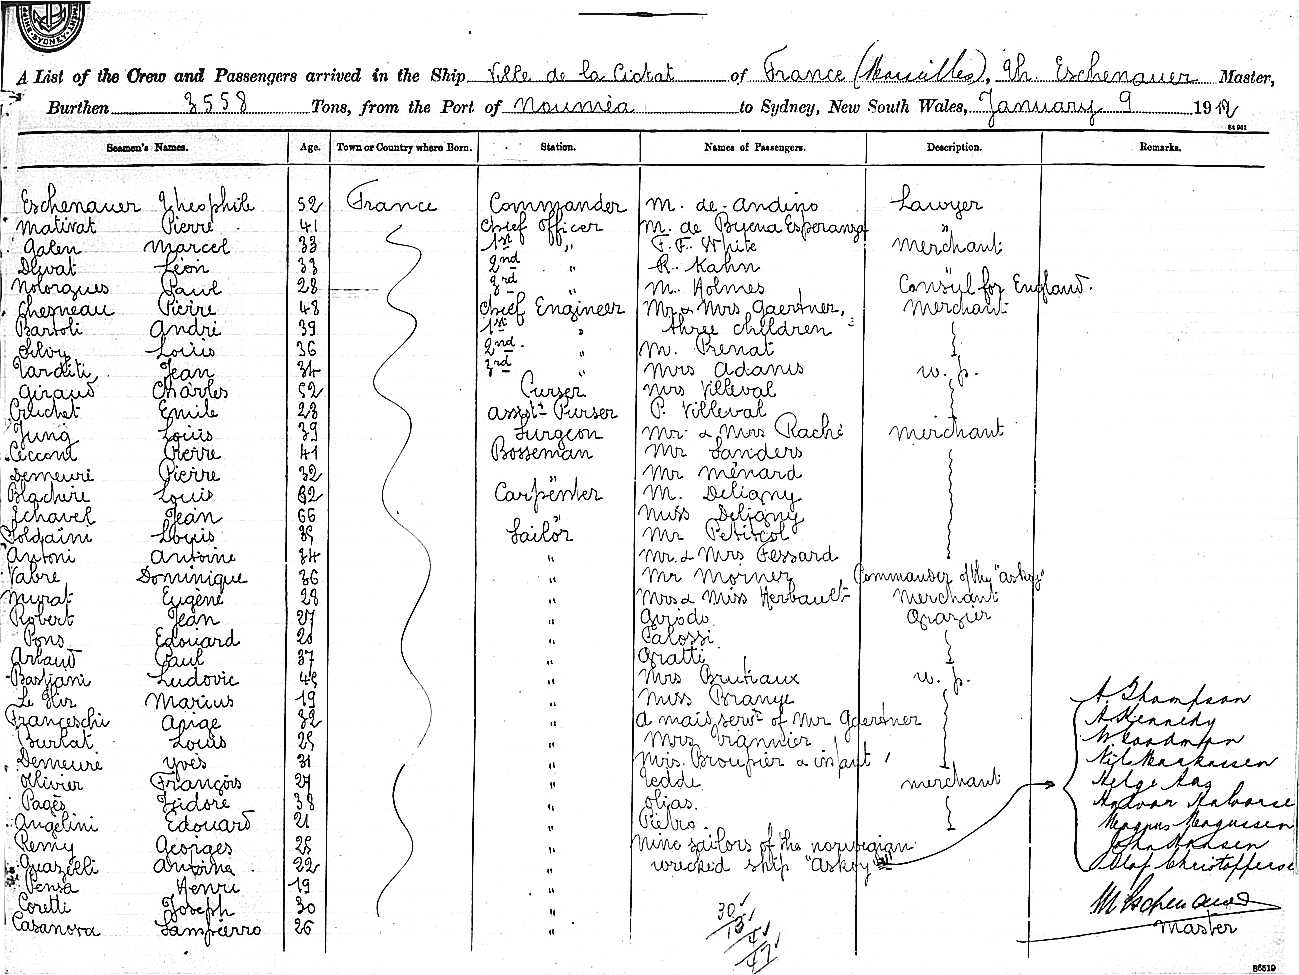 SYDNEY
A List of the Crew and Passengers arrived in the Ship Ville de la Ciotat of France (Marseilles), Th. Eschenauer Master,
Burthen 3558 Tons, from the Port of Nouméa to Sydney, New South Wales, January 9 1912
Seamen's Names. Age. Town or Country where Born. Station. Names of Passengers. Description. Remarks.
Eschenauer Theophile 52 France Commander M. de Andino Lawyer
Mativat Pierre 41 Chief Officer M. de Buena Esperanza "
Galen Marcel 33 1st " F. F. White Merchant
Léon 33 2nd " R. Kahn
Paul 28 3rd " M. Holmes Consul for England.
Chesneau Pierre 48 Chief Engineer Mr & Mrs Gaertner, merchant
Bartoli André 39 1st " three children
Silvy Louis 36 2nd. " M. Prenat
Tarditi Jean 34 3rd " Mrs Adams w. p.
Giraud Charles 52 Purser Mrs Villeval
Cruchet Emile 23 Asst. Purser P. Villeval
Jung Louis 39 Surgeon Mr & Mrs Raché merchant
Ceccont Pierre 41 Bosseman Mr Sanders
Demeure Pierre 32 " Mr Ménard
Blachère Louis 32 Carpenter M. Deligny
Echavel Jean 66 " Miss Deligny
Soldaini Louis 35 Sailor Mr Petitcol
Antoni Antoine 34 " Mr. & Mrs Fessard
Vabre Dominique 36 " Mr Morner Commander of the "Askoy"
Murat Eugène 28 " Mrs & Miss Herbault merchant
Robert Jean 27 " Grazier
Pons Edouard 20 " Calossi
Arnaud Paul 37 " Gratti
Bastiani Ludovic 45 " Mrs Bruteaux w. p.
Le Hir Marius 19 " Miss Branye A Thompson
Franceschi Apige 32 " a maid serv. of Mr Gaertner A Kennedy
Burlat Louis 25 " Mrs Vannier W Goodman
Demeure Yves 31 " Mrs. Broupier & infant
Olivier François 27 " Tedde merchant Helge Aas
Pagès Isidore 38 " Olias. Halvor Halvorse
Angelini Edouard 21 " Pietro Magnus Magnussen
Remy Georges 25 " Nine sailors of the norwegian John Hansen
Quazelli Antoine 22 " wrecked ship "Askoy" Olaf Christofferse
Pensa Henri 19 "
Coretti Joseph 30 " 30 M Eschenauer
Casanova Sampierro 26 " 15 Master
47
86519